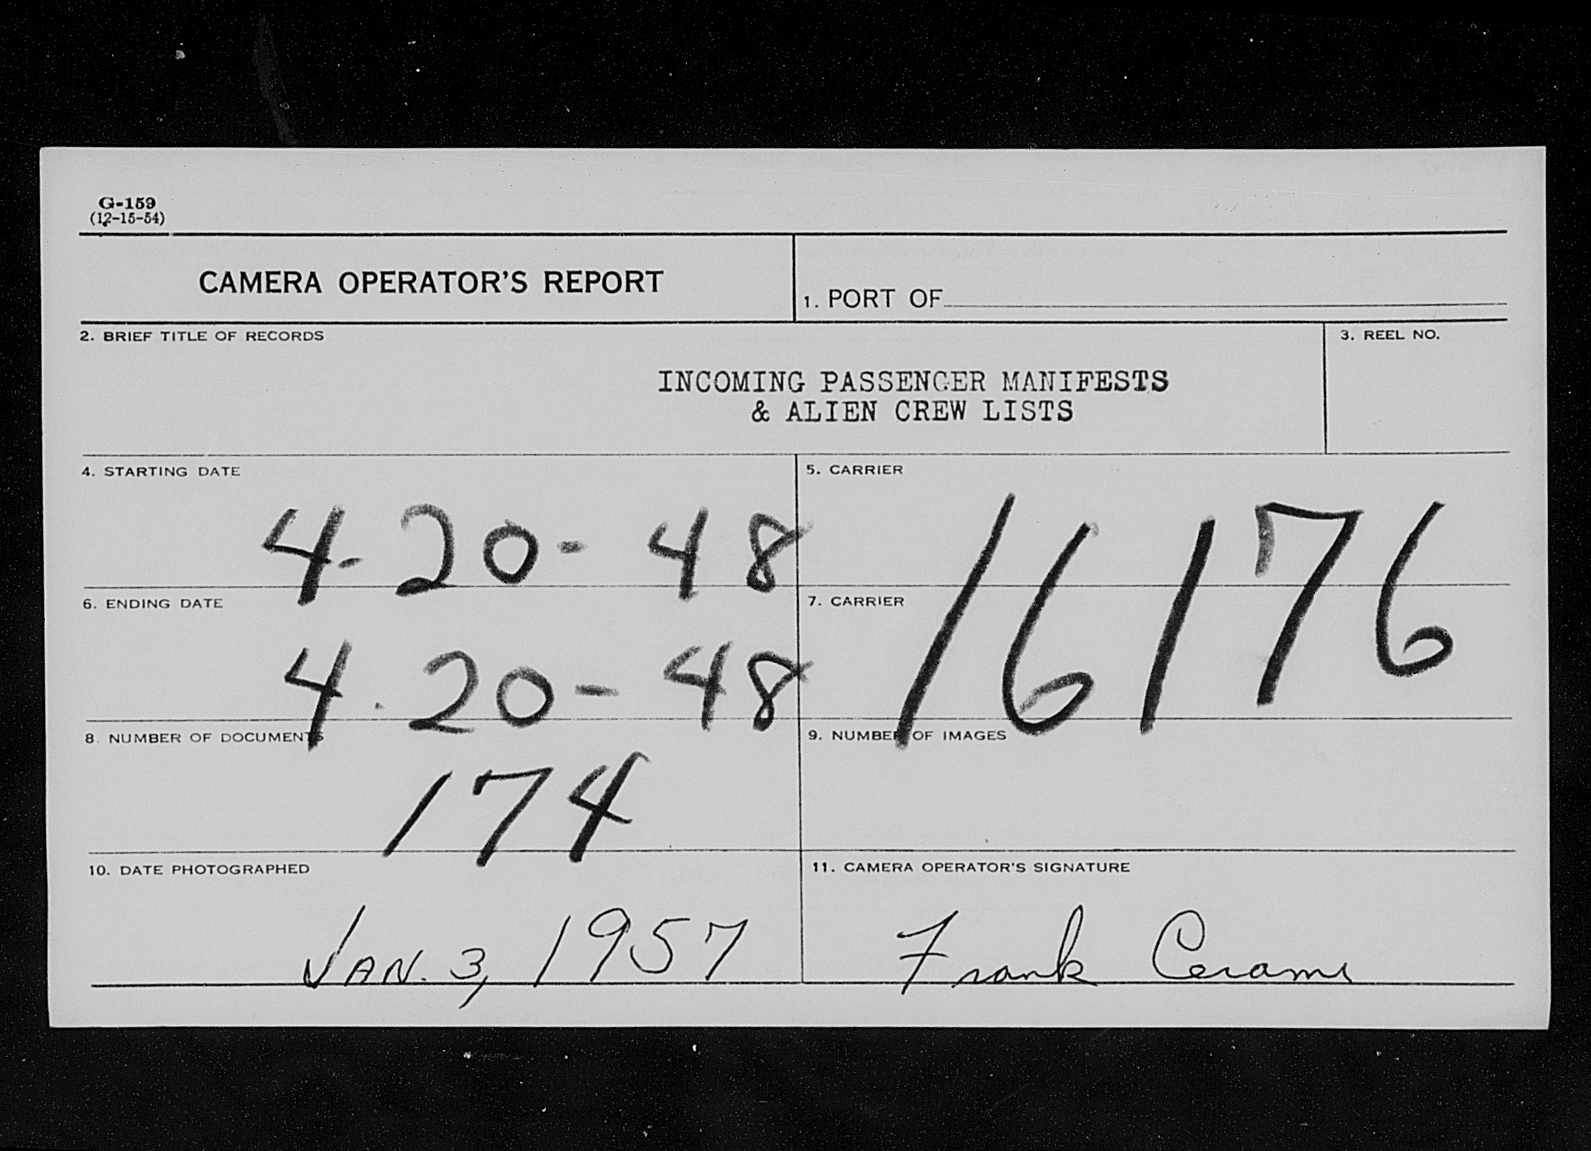 G-159
(12-15-54)
CAMERA OPERATOR'S REPORT
1. PORT OF
2. BRIEF TITLE OF RECORDS
INCOMING PASSENGER MANIFESTS
& ALIEN CREW LISTS
3. REEL NO.
4. STARTING DATE
4-20-48
5. CARRIER
16176
6. ENDING DATE
4.20-48
7. CARRIER
8. NUMBER OF DOCUMENTS
174
9. NUMBER OF IMAGES
10. DATE PHOTOGRAPHED
JAN. 3, 1957
11. CAMERA OPERATOR'S SIGNATURE
Frank Cerami